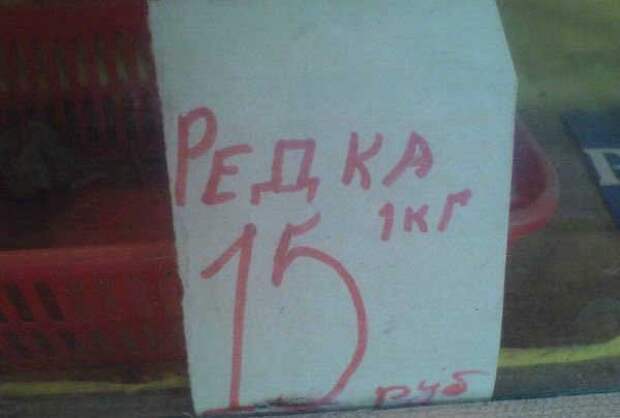 РЕДКА
1кг
15
руб